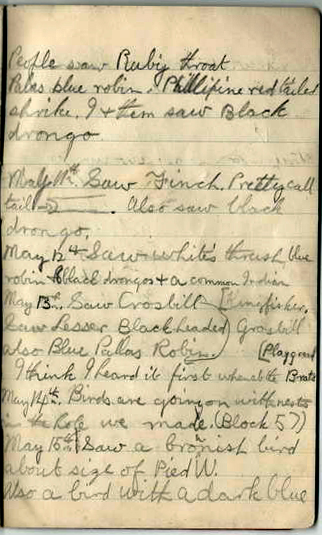 People saw Ruby throat
Pallas blue robin. Phillipine red tailed
shrike. I & them saw Black
drongo
May 11th. Saw Finch. Pretty call
tail. Also saw black
drongo.
May 12th Saw white's thrush, blue
robin & black drongos & a common Indian
May 13th. Saw Crosbill [Kingfisher.
Saw Lesser Blackheaded Grosbill
also Blue Pallas Robin. [Playground
I think I heard it first when at the
May 14th. Birds are going on with nests
in the hole we made. (Block 57)
May 15th Saw a brownish bird
about size of Pied W.
Also a bird with a dark blue